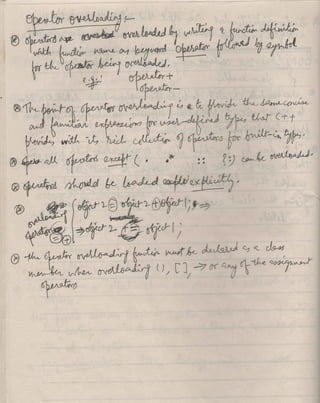 operator overloading :-
operators are overloaded by writing a function definition
with function name as keyword operator followed by symbol
for the operator being overloaded.
e.g:- operator+
operator-
The point of operator overloading is to provide the same concise
and familiar expressions for user-defined types that C++
provides with its rich collection of operators for built-in types.
all operators except ( . .* :: ?:) can be overloaded.
operators should be loaded explicitly.
overloading operators = +
object 2 = object 2 + object 1;
⇒ object 2 += object 1;
the operator overloading function must be declared as a class
member when overloading (), [], → or any of the assignment
operators